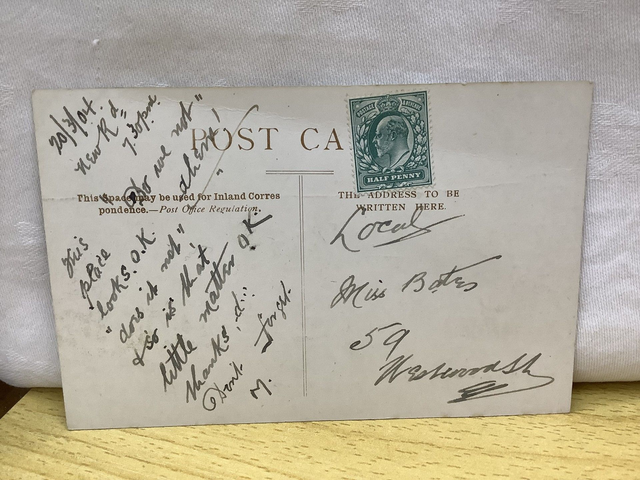 POST CA
POSTAGE & REVENUE
HALF PENNY
This Space may be used for Inland Corres
pondence.—Post Office Regulation.
THE ADDRESS TO BE
WRITTEN HERE.
20/3/04
New Rd
7.30 pm.
"Do we not"
ahem!
This
place
looks. O.K.
"does it not"
& so is that
little matter O.K.
thanks,
Dont forget.
M.
Local
Miss Bates
59
Westwood St